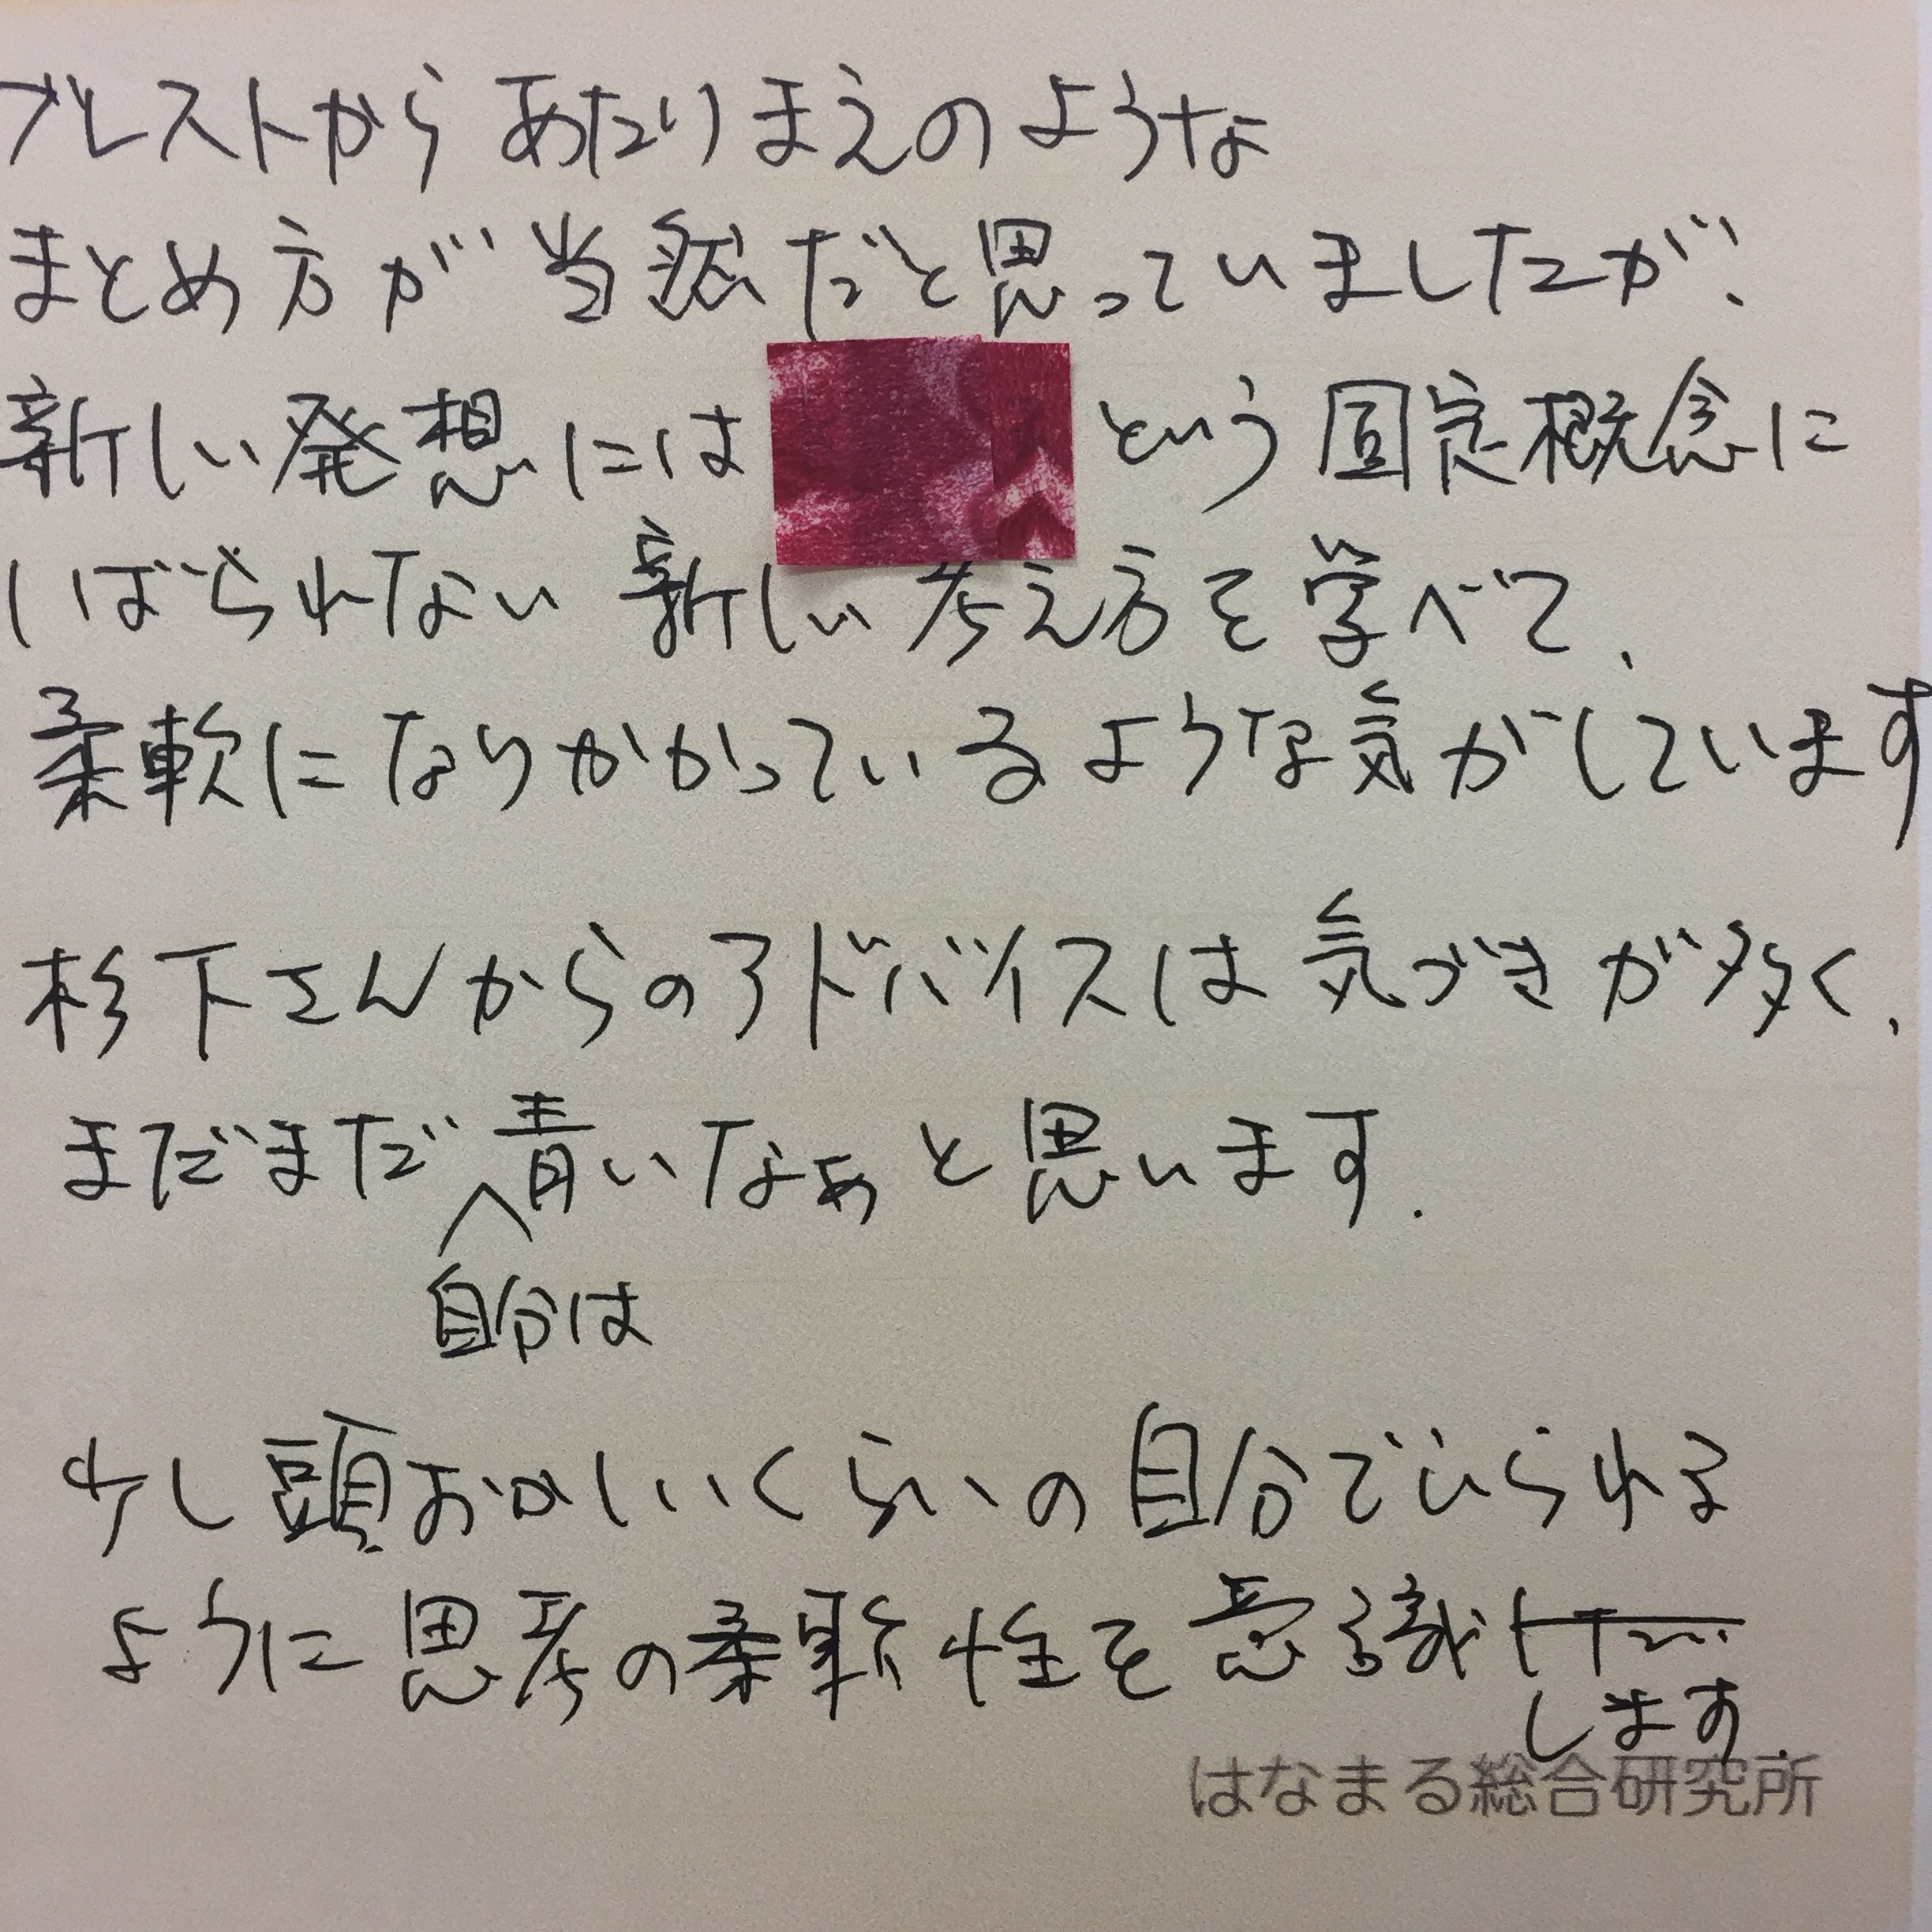 ブレストからあたりまえのような
まとめ方が当然だと思っていましたが、
新しい発想には という固定概念に
しばられない新しい考え方を学べて、
柔軟になりかかっているような気がしています
杉下さんからのアドバイスは気づきが多く、
まだまだ青いなぁと思います.
自分は
少し頭おかしいくらいの自分でいられる
ように思考の柔軟性を意識
します.
はなまる総合研究所